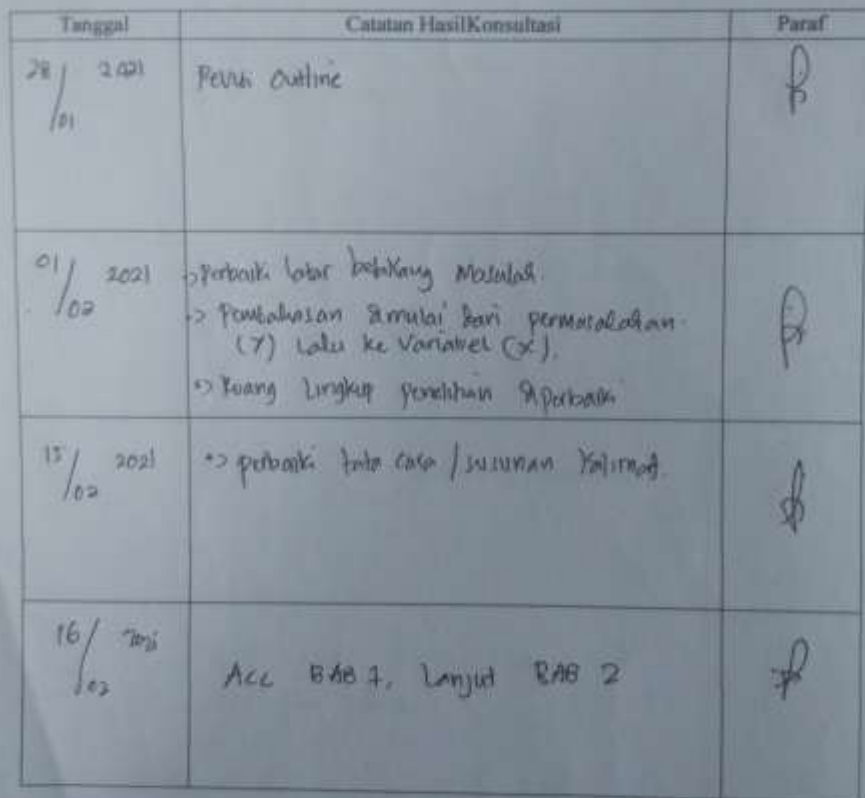 Tanggal Catatan HasilKonsultasi Paraf
28/01 2021 Outline
01/02 2021 -> Perbaiki latar belakang Masalah.
-> Pembahasan dimulai dari permasalahan
(Y) Lalu ke Variabel (X).
-> Ruang Lingkup penelitian diperbaiki
15/02 2021 -> perbaiki tata cara / susunan kalimat.
16/02 2021 Acc BAB 1, Lanjut BAB 2